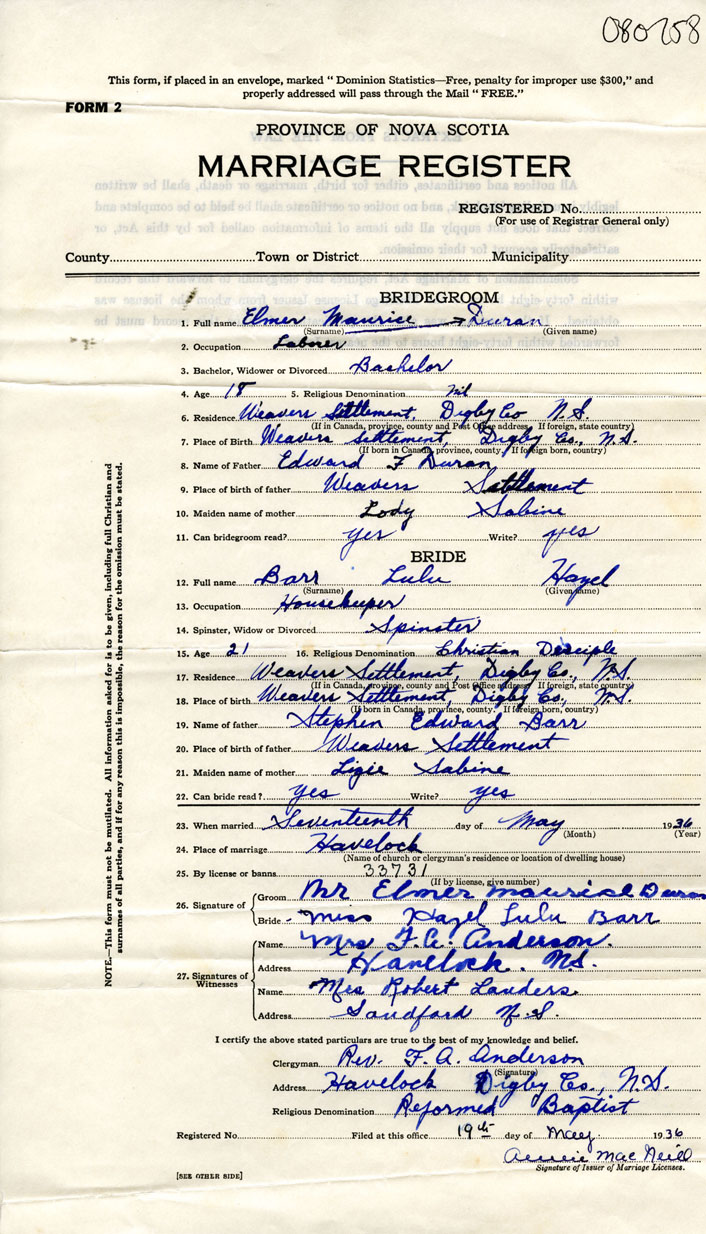 080758
This form, if placed in an envelope, marked " Dominion Statistics—Free, penalty for improper use $300," and
properly addressed will pass through the Mail " FREE."
FORM 2
PROVINCE OF NOVA SCOTIA
MARRIAGE REGISTER
REGISTERED No.
(For use of Registrar General only)
County Town or District Municipality
BRIDEGROOM
1. Full name Elmer Maurice Duran
(Surname) (Given name)
2. Occupation Laborer
3. Bachelor, Widower or Divorced Bachelor
4. Age 18 5. Religious Denomination nil
6. Residence Weavers Settlement, Digby Co N.S.
(If in Canada, province, county and Post Office address. If foreign, state country)
7. Place of Birth Weavers Settlement, Digby Co., N.S.
(If born in Canada, province, county. If foreign born, country)
8. Name of Father Edward F Duran
9. Place of birth of father Weavers Settlement
10. Maiden name of mother Lody Sabine
11. Can bridegroom read? yes Write? yes
BRIDE
12. Full name Barr Lulu Hazel
(Surname) (Given name)
13. Occupation Housekeeper
14. Spinster, Widow or Divorced Spinster
15. Age 21 16. Religious Denomination Christian Desciple
17. Residence Weavers Settlement, Digby Co., N.S.
(If in Canada, province, county and Post Office address. If foreign, state country)
18. Place of birth Weavers Settlement, Digby Co., N.S.
(If born in Canada, province, county. If foreign born, country)
19. Name of father Stephen Edward Barr
20. Place of birth of father Weavers Settlement
21. Maiden name of mother Lizie Sabine
22. Can bride read? yes Write? yes
23. When married Seventeenth day of May 1936
(Month) (Year)
24. Place of marriage Havelock
(Name of church or clergyman's residence or location of dwelling house)
25. By license or banns 33731
(If by license, give number)
26. Signature of
Groom Mr Elmer Maurice Duran
Bride Miss Hazel Lulu Barr
27. Signatures of Witnesses
Name Mrs F. A. Anderson.
Address Havelock. N.S.
Name Mrs Robert Landers
Address Sandford N.S.
I certify the above stated particulars are true to the best of my knowledge and belief.
Clergyman Rev. F. A. Anderson
(Signature)
Address Havelock Digby Co., N.S.
Religious Denomination Reformed Baptist
Registered No. Filed at this office 19th day of May 1936
Annie Mac Neill
Signature of Issuer of Marriage Licenses.
[SEE OTHER SIDE]
NOTE.—This form must not be mutilated. All information asked for is to be given, including full Christian and
surnames of all parties, and if for any reason this is impossible, the reason for the omission must be stated.